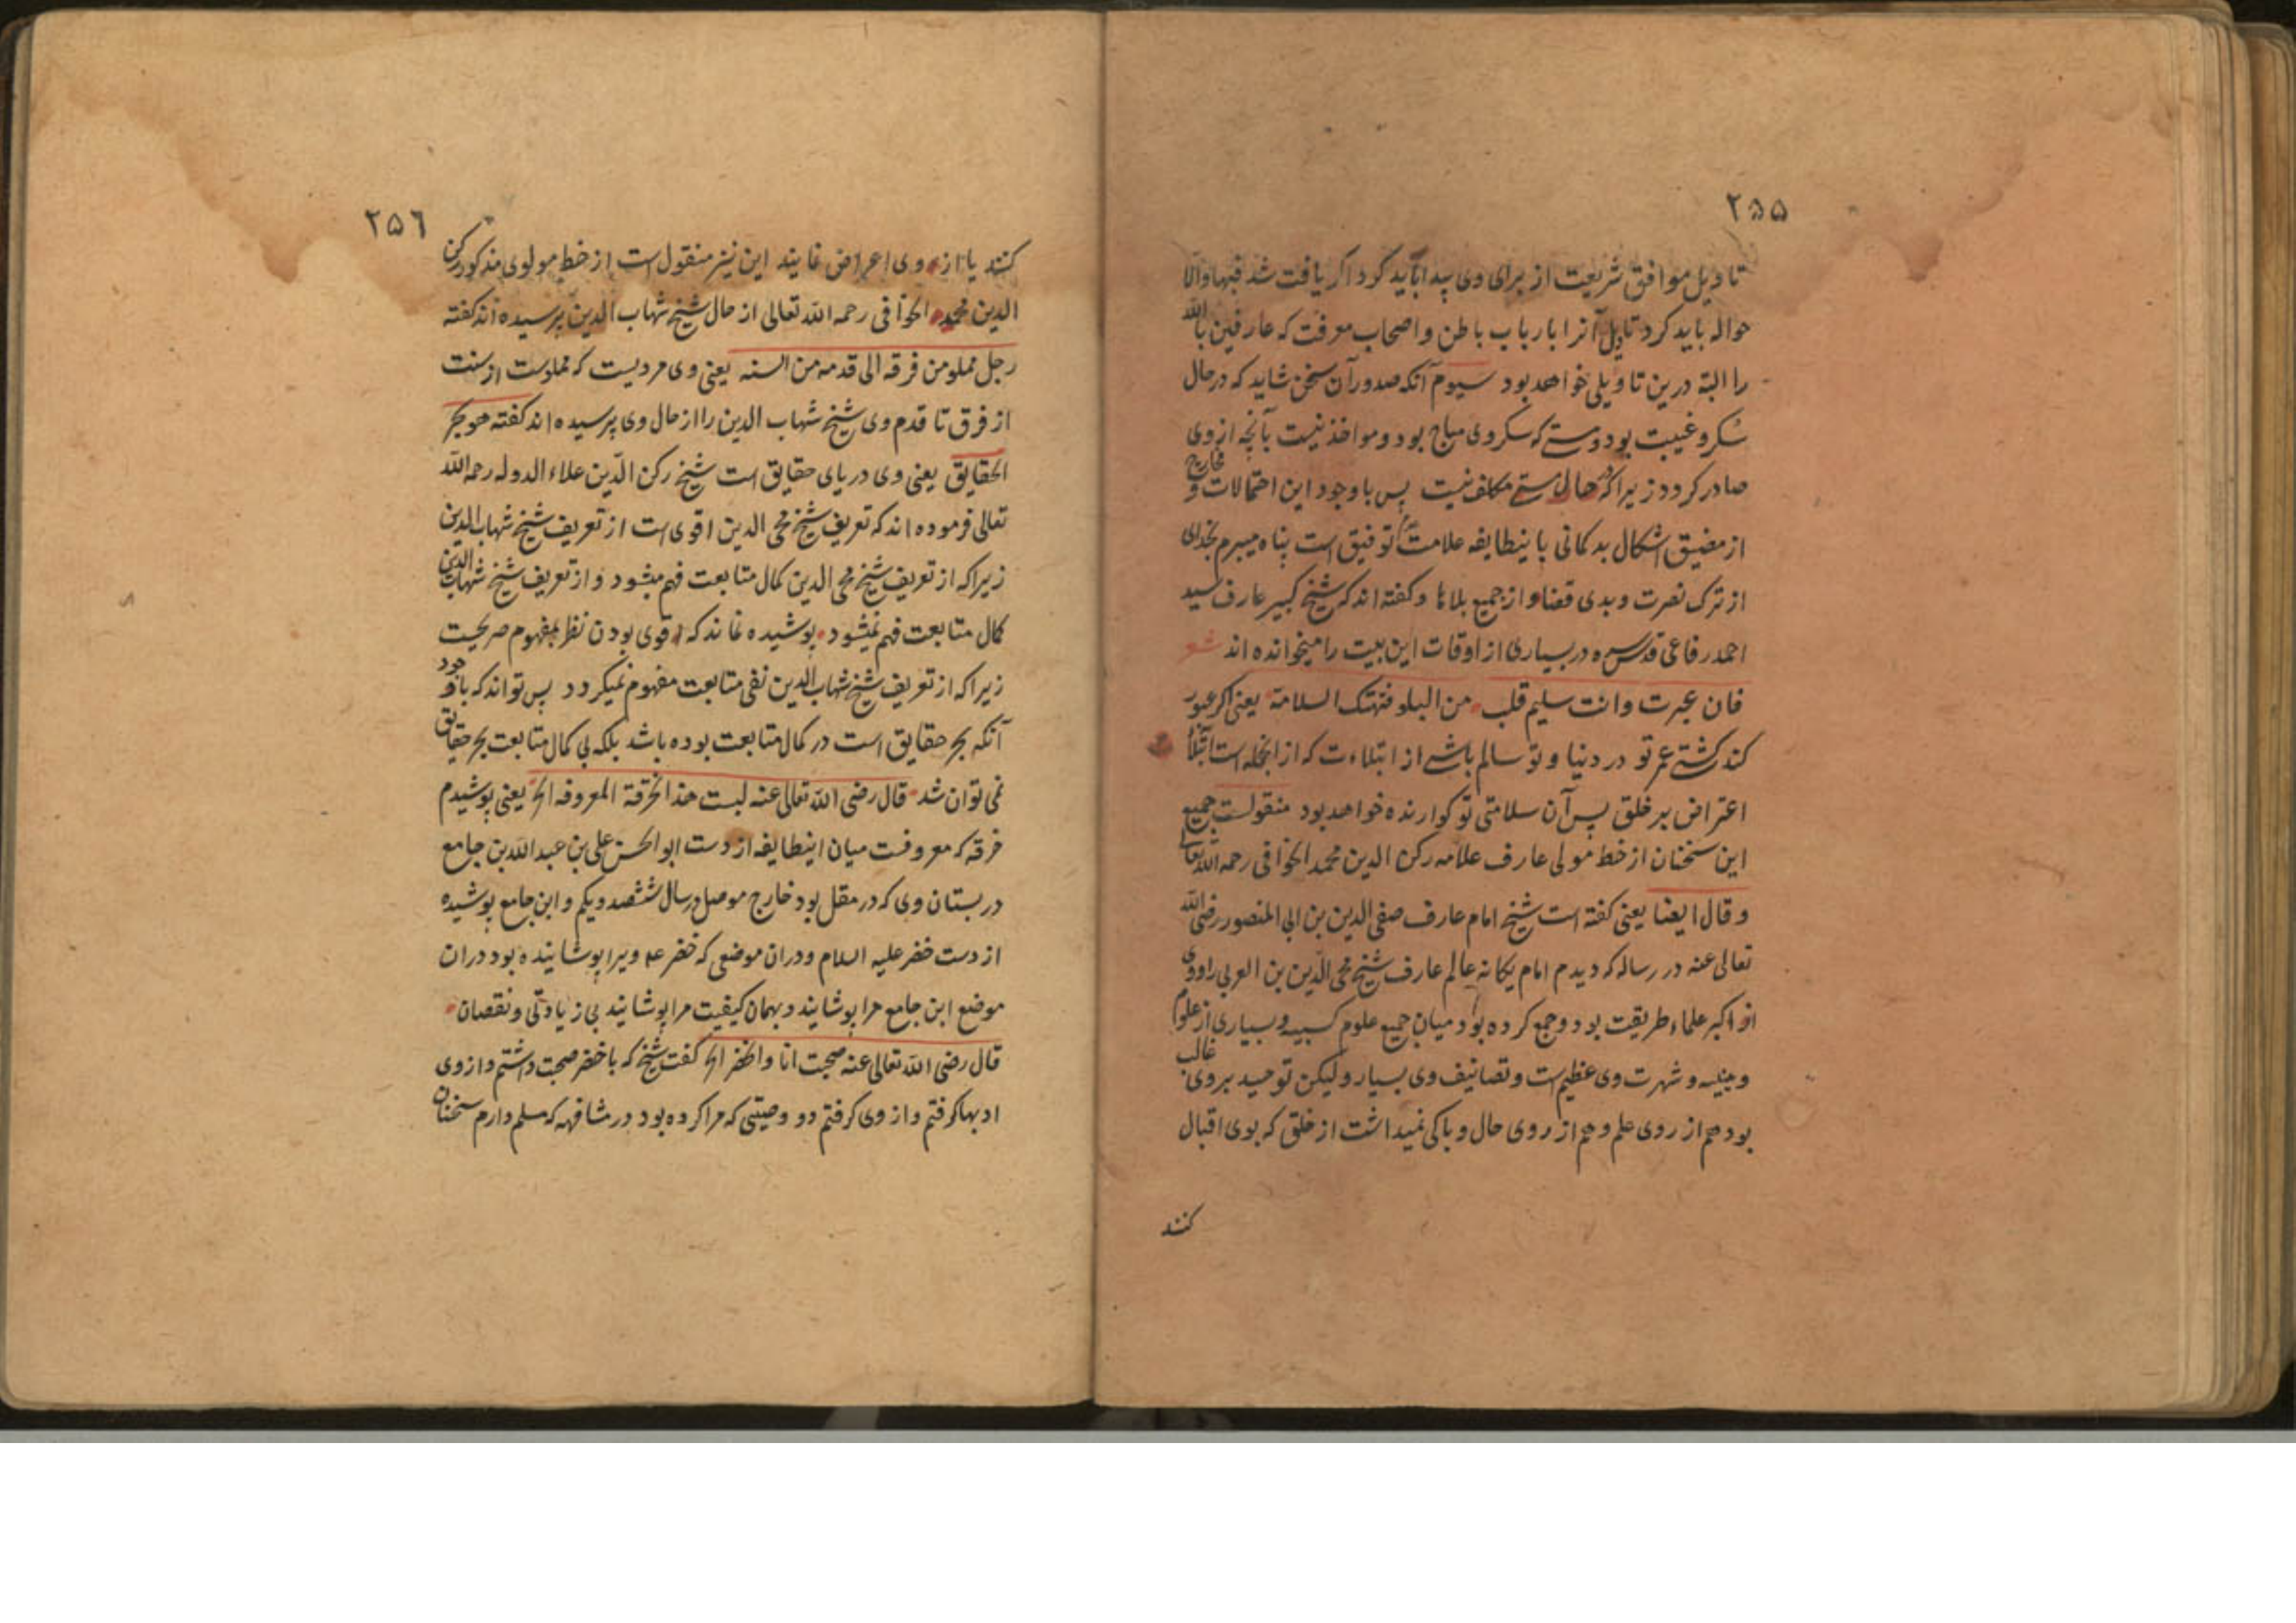 ۲۵۵
تا ویل موافق شریعت از برای وی پیدا باید کرد اکر یافت شد فبها والا
حواله باید کرد تاویل آنرا بارباب باطن و اصحاب معرفت که عارفین بالله
را البته درین تاویلی خواهد بود سیوم آنکه صدور آن سخن شاید که در حال
سکر و غیبت بود و مستی که سکر وی مباح بود و مواخذ نیست بآنچه از وی
صادر کردد زیرا که در حال مستی مکلف نیست پس باوجود این احتمالات و مخارج
از مضیق اشکال بد کمانی باینطایفه علامت توفیق است پناه میبرم بخدای
از ترک نصرت و بدی قضا و از جمیع بلاها و کفته اند که شیخ کبیر عارف سید
احمد رفاعی قدس سره در بسیاری از اوقات این بیت را میخوانده اند شعر
فان عبرت وانت سلیم قلب من البلو فتهتک السلامة یعنی اکر عبور
کند کشتی عمر تو در دنیا و تو سالم باشی از ابتلاءت که از انجمله است ابتلا
اعتراض بر خلق پس آن سلامتی تو کوارنده خواهد بود منقولست جمیع
این سخنان از خط مولی عارف علامه رکن الدین محمد الخوافی رحمه الله تعالی
و قال ایضا یعنی کفته است شیخ امام عارف صفی الدین بن ابی المنصور رضی الله
تعالی عنه در رساله که دیدم امام یکانه عالم عارف شیخ محی الدین بن العربی را و وی
از اکبر علماء طریقت بود و جمع کرده بود میان جمیع علوم کسبیه و بسیاری از علوم
وهبیه و شهرت وی عظیم است و تصانیف وی بسیار و لیکن توحید بر وی غالب
بود هم از روی علم و هم از روی حال و باکی نمیداشت از خلق که بوی اقبال
کنند
۲۵۶
کنند یا از وی اعراض نمایند این نیز منقول است از خط مولوی مذکور رکن
الدین محمد الخوافی رحمه الله تعالی از حال شیخ شهاب الدین پرسیده اند کفته
رجل مملو من فرقه الی قدمه من السنه یعنی وی مردیست که مملوست از سنت
از فرق تا قدم وی شیخ شهاب الدین را از حال وی پرسیده اند کفته هو بحر
الحقایق یعنی وی دریای حقایق است شیخ رکن الدین علاء الدوله رحمه الله
تعالی فرموده اند که تعریف شیخ محی الدین اقوی است از تعریف شیخ شهاب الدین
زیرا که از تعریف شیخ محی الدین کمال متابعت فهم میشود و از تعریف شیخ شهاب الدین
کمال متابعت فهم نمیشود پوشیده نماند که اقوی بودن نظر بمفهوم صریحست
زیرا که از تعریف شیخ شهاب الدین نفی متابعت مفهوم نمیکردد پس تواند که باوجود
آنکه بحر حقایق است در کمال متابعت بوده باشد بلکه بی کمال متابعت بحر حقایق
نمی توان شد قال رضی الله تعالی عنه لبست هذا الخرقة المعروفه الخ یعنی پوشیدم
خرقه که معروفست میان اینطایفه از دست ابو الحسن علی بن عبد الله بن جامع
در بستان وی که در مقلی بود خارج موصل در سال ششصد و یکم و ابن جامع پوشیده
از دست خضر علیه السلام و دران موضعی که خضر عم ویرا پوشانیده بود دران
موضع ابن جامع مرا پوشانید و بهمان کیفیت مرا پوشانید بی زیادتی و نقصان
قال رضی الله تعالی عنه صحبت انا والخضر الخ کفت شیخ که با خضر صحبت داشتم و از وی
ادبها کرفتم و از وی کرفتم دو وصیتی که مرا کرده بود در مشافهه که مسلم دارم سخنان